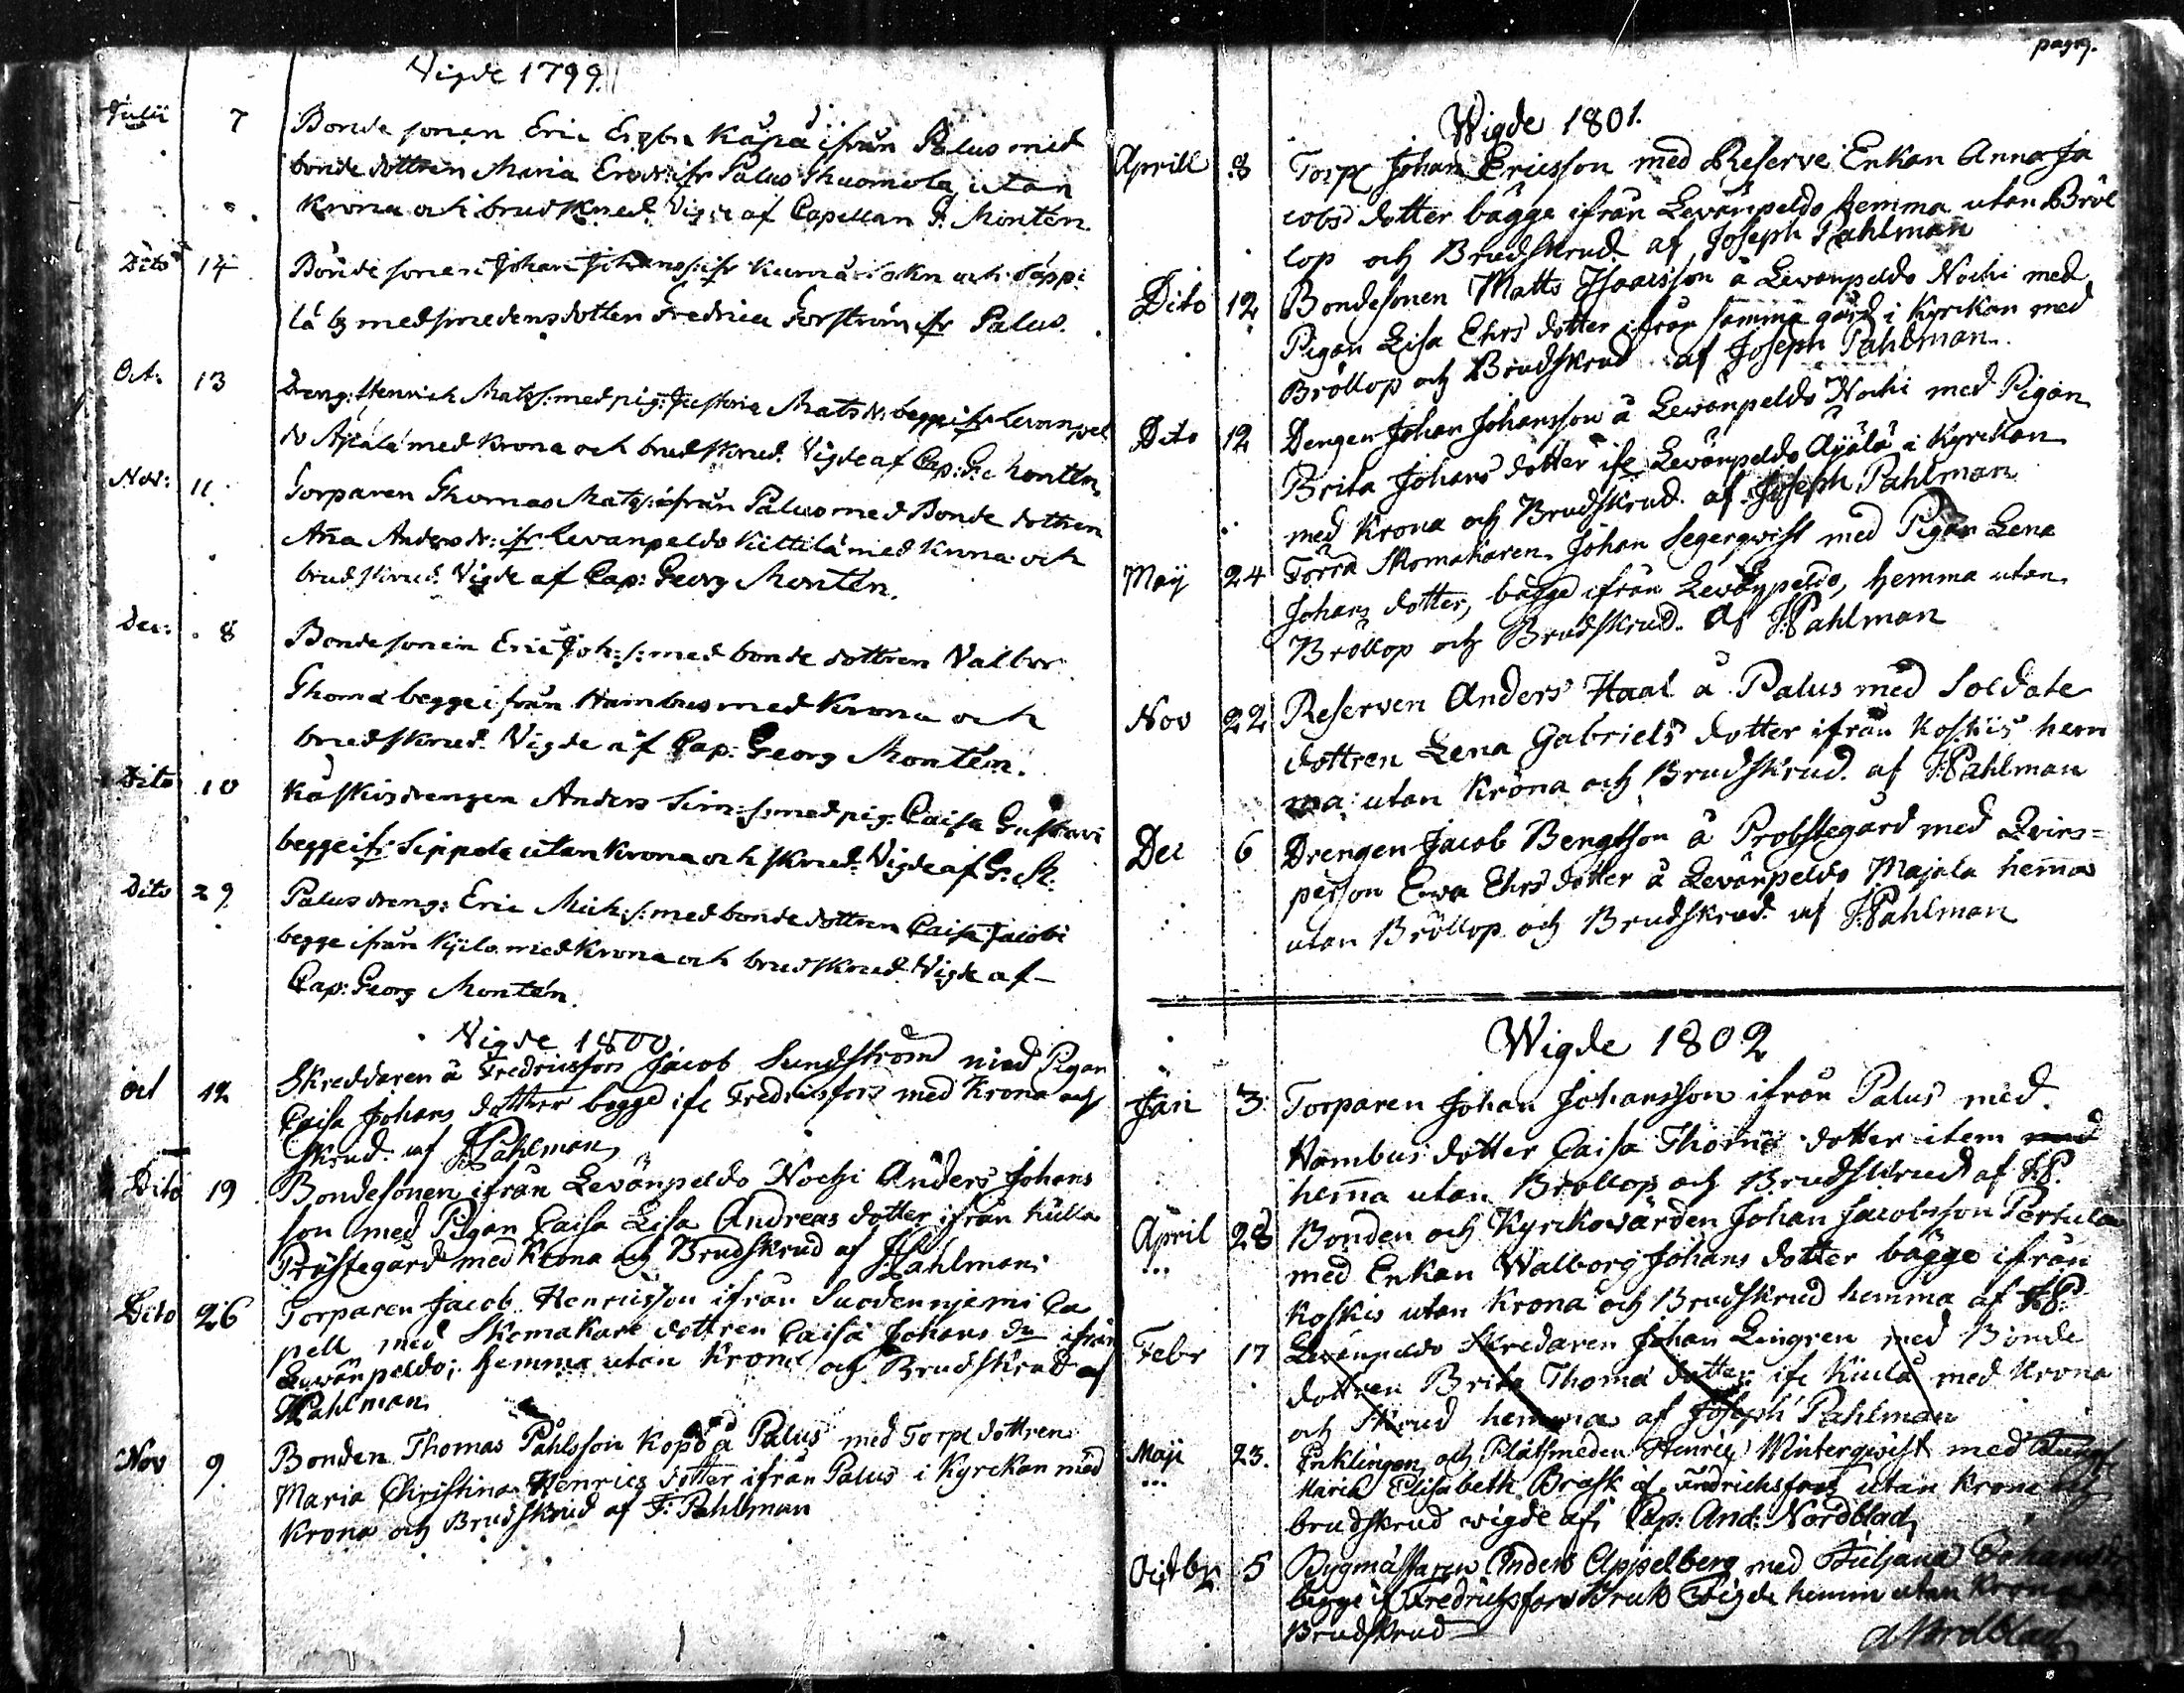 Vigde 1799
Julii 7 Bonde sonen Eric Ersson Kåpa ifrån Palus med
bonde dottren Maria Ersdr: ifr Palus Thuomola utan
Krona och brudskrud. Vigde af Capellan G. Montén.
Dito 14 Bonde sonen Johan Johanss: ifr Kumå Sokn och Såppi
lå by med smedens dotten Fredrica Forström ifr Palus.
Oct: 13 Dreng: Henrich Mats s: med pig: Justina Mats dr: begge ifr Levanpel
do Äjälä med Krona och brudskrud. Vigde af Cap: G: Montén
Nov: 11 Torparen Thomas Mats s: ifrån Palus med Bonde dottren
Aña Anders dr: ifr Levanpeldo Kittilä med Krona och
brudskrud. Vigde af Cap: Georg Montén.
Dec: 8 Bonde sonen Eric Joh: s: med bonde dottren Valbor
Thoma begge ifrån Hambus med Krona och
brudskrud. Vigde af Cap: Georg Montén.
Dito 10 Kåskis drengen Anders Sim: s: med pig: Caisa Gustavi
begge ifr Sippola utan Krona och skrud. Vigde af G: M:
Dito 29 Palus dreng: Eric Mich: s: med bonde dottren Caisa Jacobi
begge ifrån Kjila med Krona och brudskrud. Vigde af
Cap: Georg Montén.
Vigde 1800
Oct 12 Skreddaren å Fredricsfors Jacob Sundström med Pigan
Caisa Johans dotter begge ifr Fredricsfors med Krona och
skrud. af J: Pahlman
Dito 19 Bondesonen ifrån Levänpeldo Nocki Anders Johans
son med Pigan Caisa Lisa Andreas dotter ifrån Kulla
Prästegård med Krona och Brudskrud af J: Pahlman
Dito 26 Torparen Jacob Henricsson ifrån Suodenniemi Ca
pell med Skomakare dottren Caisa Johans dr ifrån
Levänpeldo; hemma utan Krona och Brudskrud af
J: Pahlman
Nov 9 Bonden Thomas Påhlsson Kopo å Palus med Torp dottren
Maria Christina Henrics dotter ifrån Palus i Kyrckan med
Krona och Brudskrud af J: Pahlman
pag 9.
Wigde 1801.
Aprill 8 Torp Johan Ericsson med Reserve Enkan Anna Ja
cobs dotter bägge ifrån Levänpeldo hemma utan Bröl
lop och Brudskrud. af Joseph Pahlman
Dito 12 Bondesonen Matts Isaacsson å Levänpeldo Nocki med
Pigan Lisa Ehrs dotter ifrån samma gård i Kyrckan med
Bröllop och Brudskrud af Joseph Pahlman.
Dito 12 Dengen Johan Johansson å Levänpeldo Nocki med Pigan
Brita Johans dotter ifr Levänpeldo Äjälä i Kyrckan
med Krona och Brudskrud. af Joseph Pahlman
Maij 24 Förra Skomakaren Johan Segerqwist med Pigan Lena
Johans dotter, bägge ifrån Levänpeldo, hemma utan
Bröllop och Brudskrud. Af J: Pahlman
Nov 22 Reserven Anders Haal å Palus med Soldate
dottren Lena Gabriels dotter ifrån Koskis hem
ma utan Krona och Brudskrud. af J: Pahlman
Dec 6 Drengen Jacob Bengtson å Probstegård med Qvins=
person Ewa Ehrs dotter å Levänpeldo Majala hem̄a
utan Bröllop och Brudskrud. af J: Pahlman
Wigde 1802
Jan 3 Torparen Johan Johansson ifrån Palus med
Hambus dotter Caisa Thomæ dotter item med
hem̄a utan Bröllop och Brudskrud af J: P.
April 28 Bonden och Kyrckovärden Johan Jacobsson Pertula
... med Enkan Walborg Johans dotter bägge ifrån
Koskis utan Krona och Brudskrud hemma af J: P.
Febr 17 Levänpeldo Skredaren Johan Lingren med Bonde
dottren Brita Thomæ dotter ifr Kiula med Krona
och Skrud hemma af Joseph Pahlman
Maji 23. Enklingen och Plåtsmeden Henric Winterqwist med
... Maria Elisabeth Brask af Fredrichsfors utan Krona och
brudskrud wigde af Cap: And: Nordblad
Octbr 5 Bygmästaren Anders Appelberg med Juliana
begge if Fredrichsfors Bruk Wigde hemma utan Krona
Brudskrud
A Nordblad